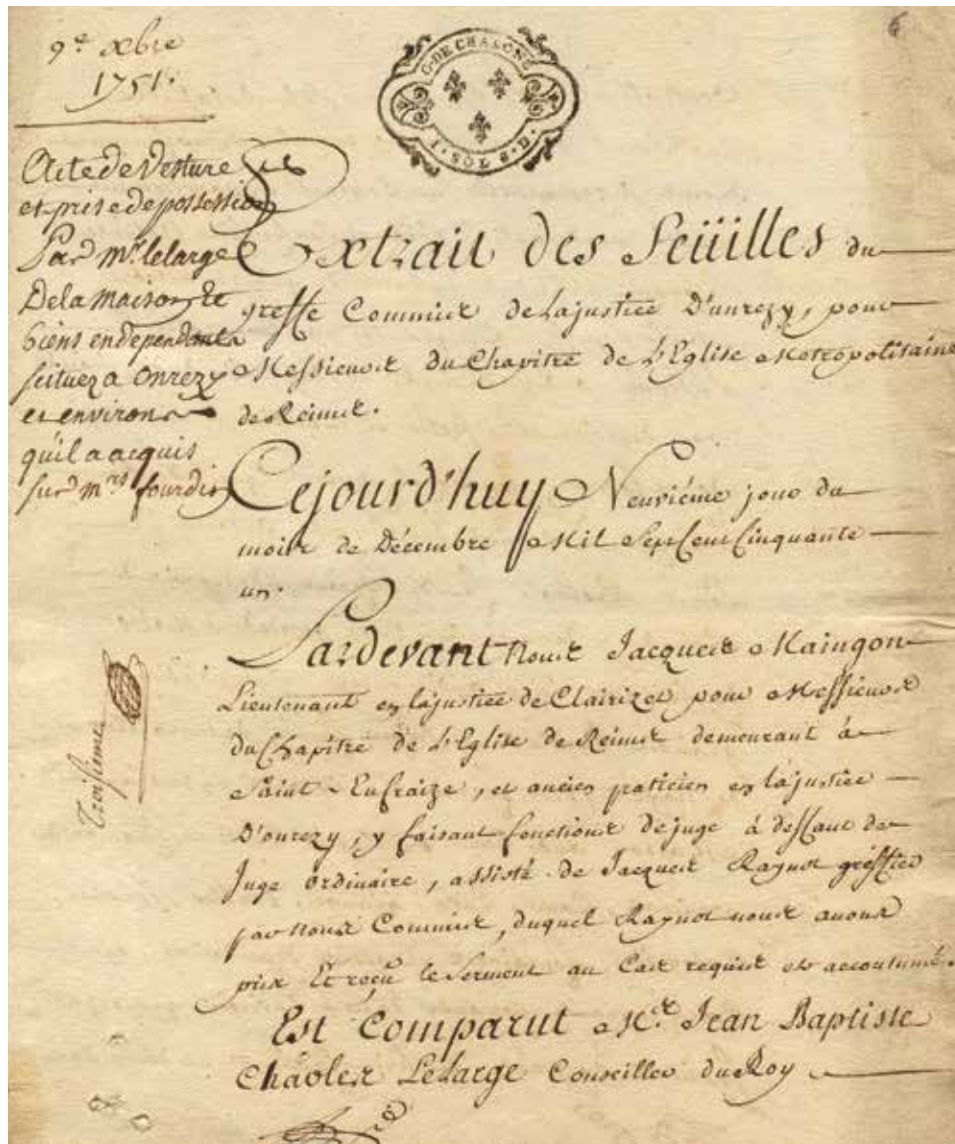 9e xbre
1751.
6
G. DE CHALONS
1. SOL 8. D.
Acte de Vesture
et prise de possession
Par mr. lelarge
De la maison et
biens en dependants
scituez a onrezy
et environs
qu'il a acquis
sur mrs fourdis
Extrait des Feüilles du
greffe Commis de Lajustice D'unrezy, pour
Messieurs du Chapitre de L'Eglise Metropolitaine
de Reims.
Cejourd'huy Neuviéme jour du
mois de Décembre Mil Sept Cent Cinquante
un.
Pardevant Nous Jacques Maingon
Lieutenant en lajustice de Clairizet pour Messieurs
du Chapitre de L'Eglise de Reims demeurant à
Saint-Eufraize, et ancien praticien en lajustice
D'onrezy, y faisant fonctions de juge à deffaut de
Juge ordinaire, assisté de Jacques Raynot gréffier
par Nous Commis, duquel Raynot nous avons
pris Et reçu le Serment au Cas requis et accoutumé.
Est Comparut Mr. Jean Baptiste
Chaoles Lelarge Conseiller du Roy
Troisieme